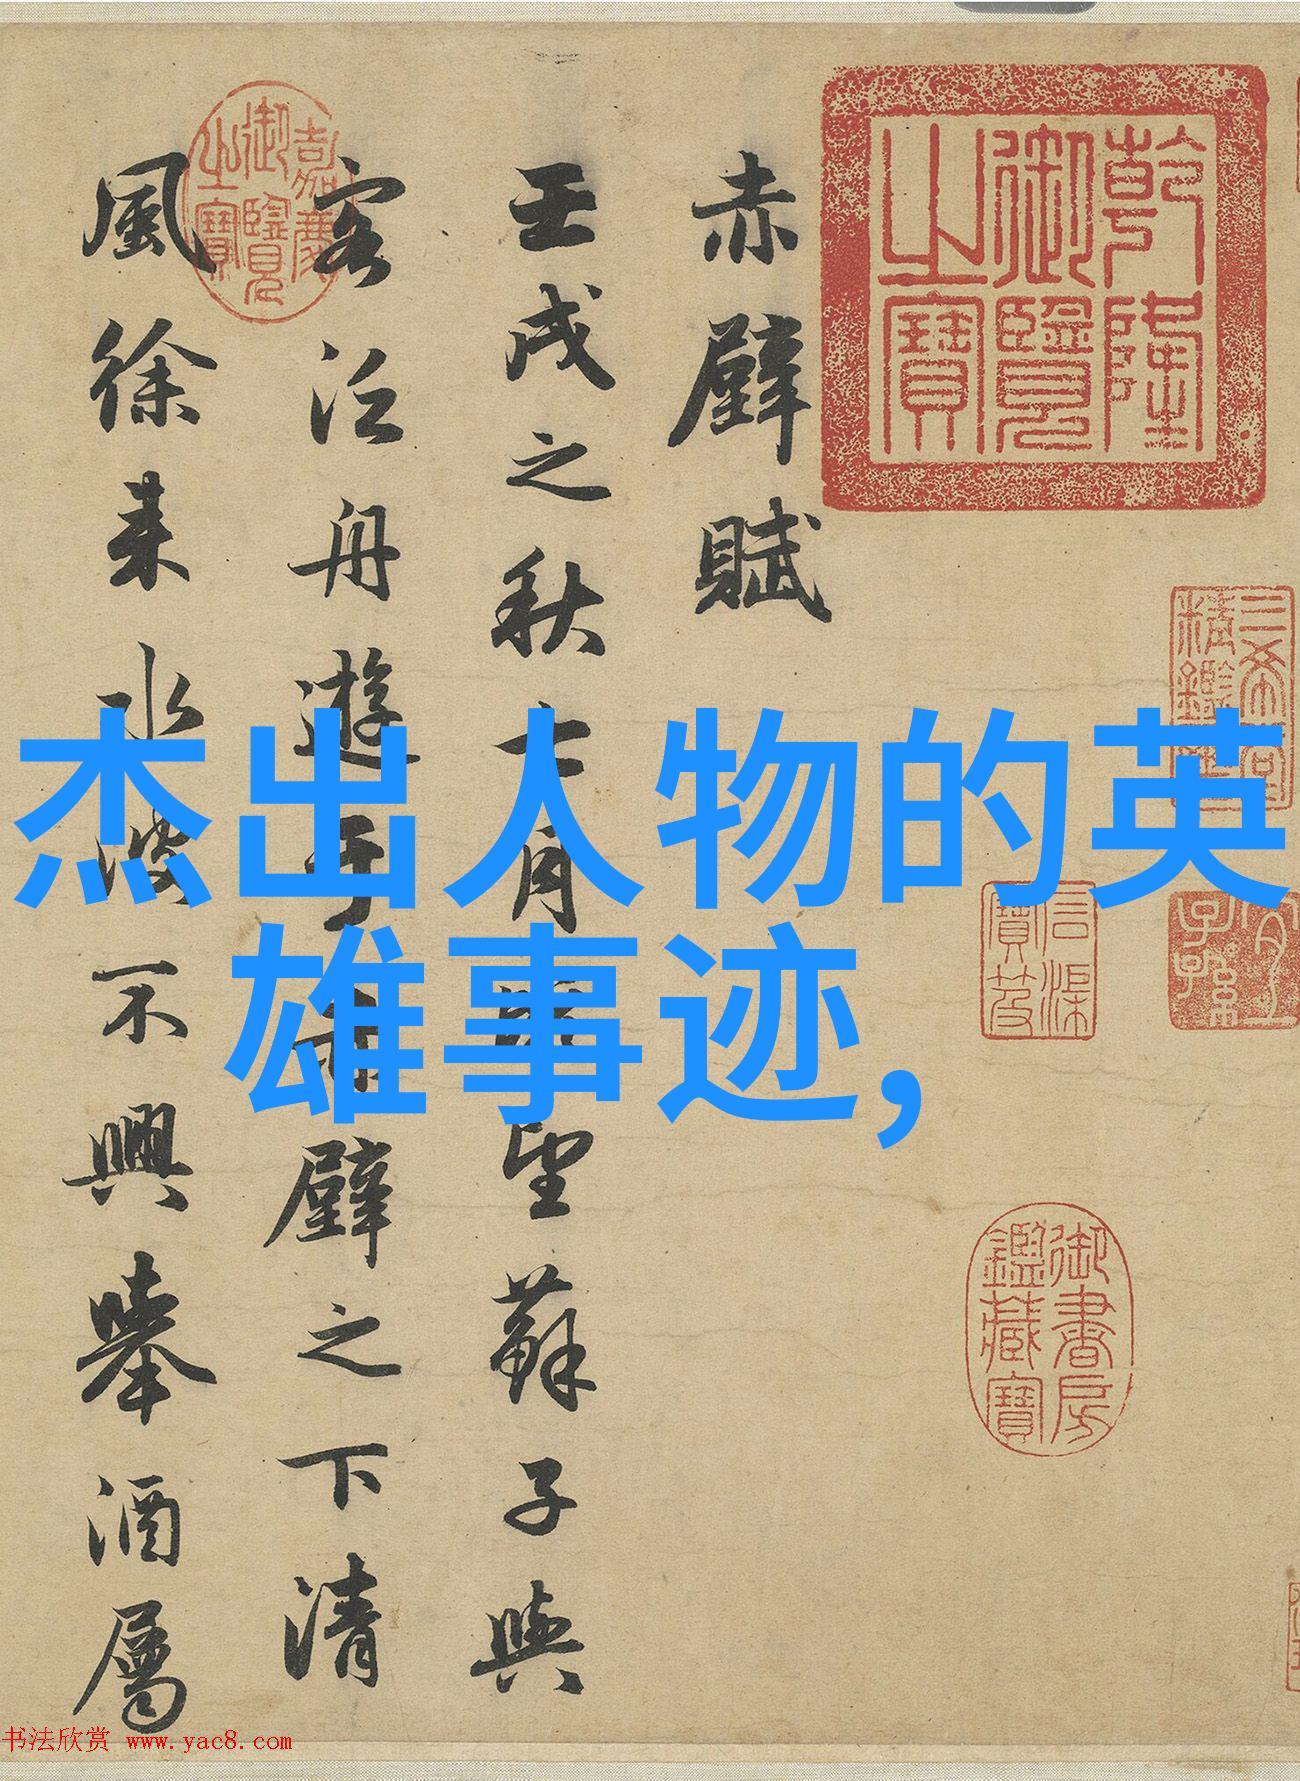 乾隆
御覽
之寶
三希堂
精鑑璽
宜
子孫
石渠
寶笈
御書房
鑑藏寶
赤壁賦
壬戌之秋七月望蘇子與
客泛舟遊于赤壁之下清
嘉慶
御覽
之寶
風徐来水波不興舉酒屬
杰出人物的英
雄事迹,
书法欣赏 www.yac8.com